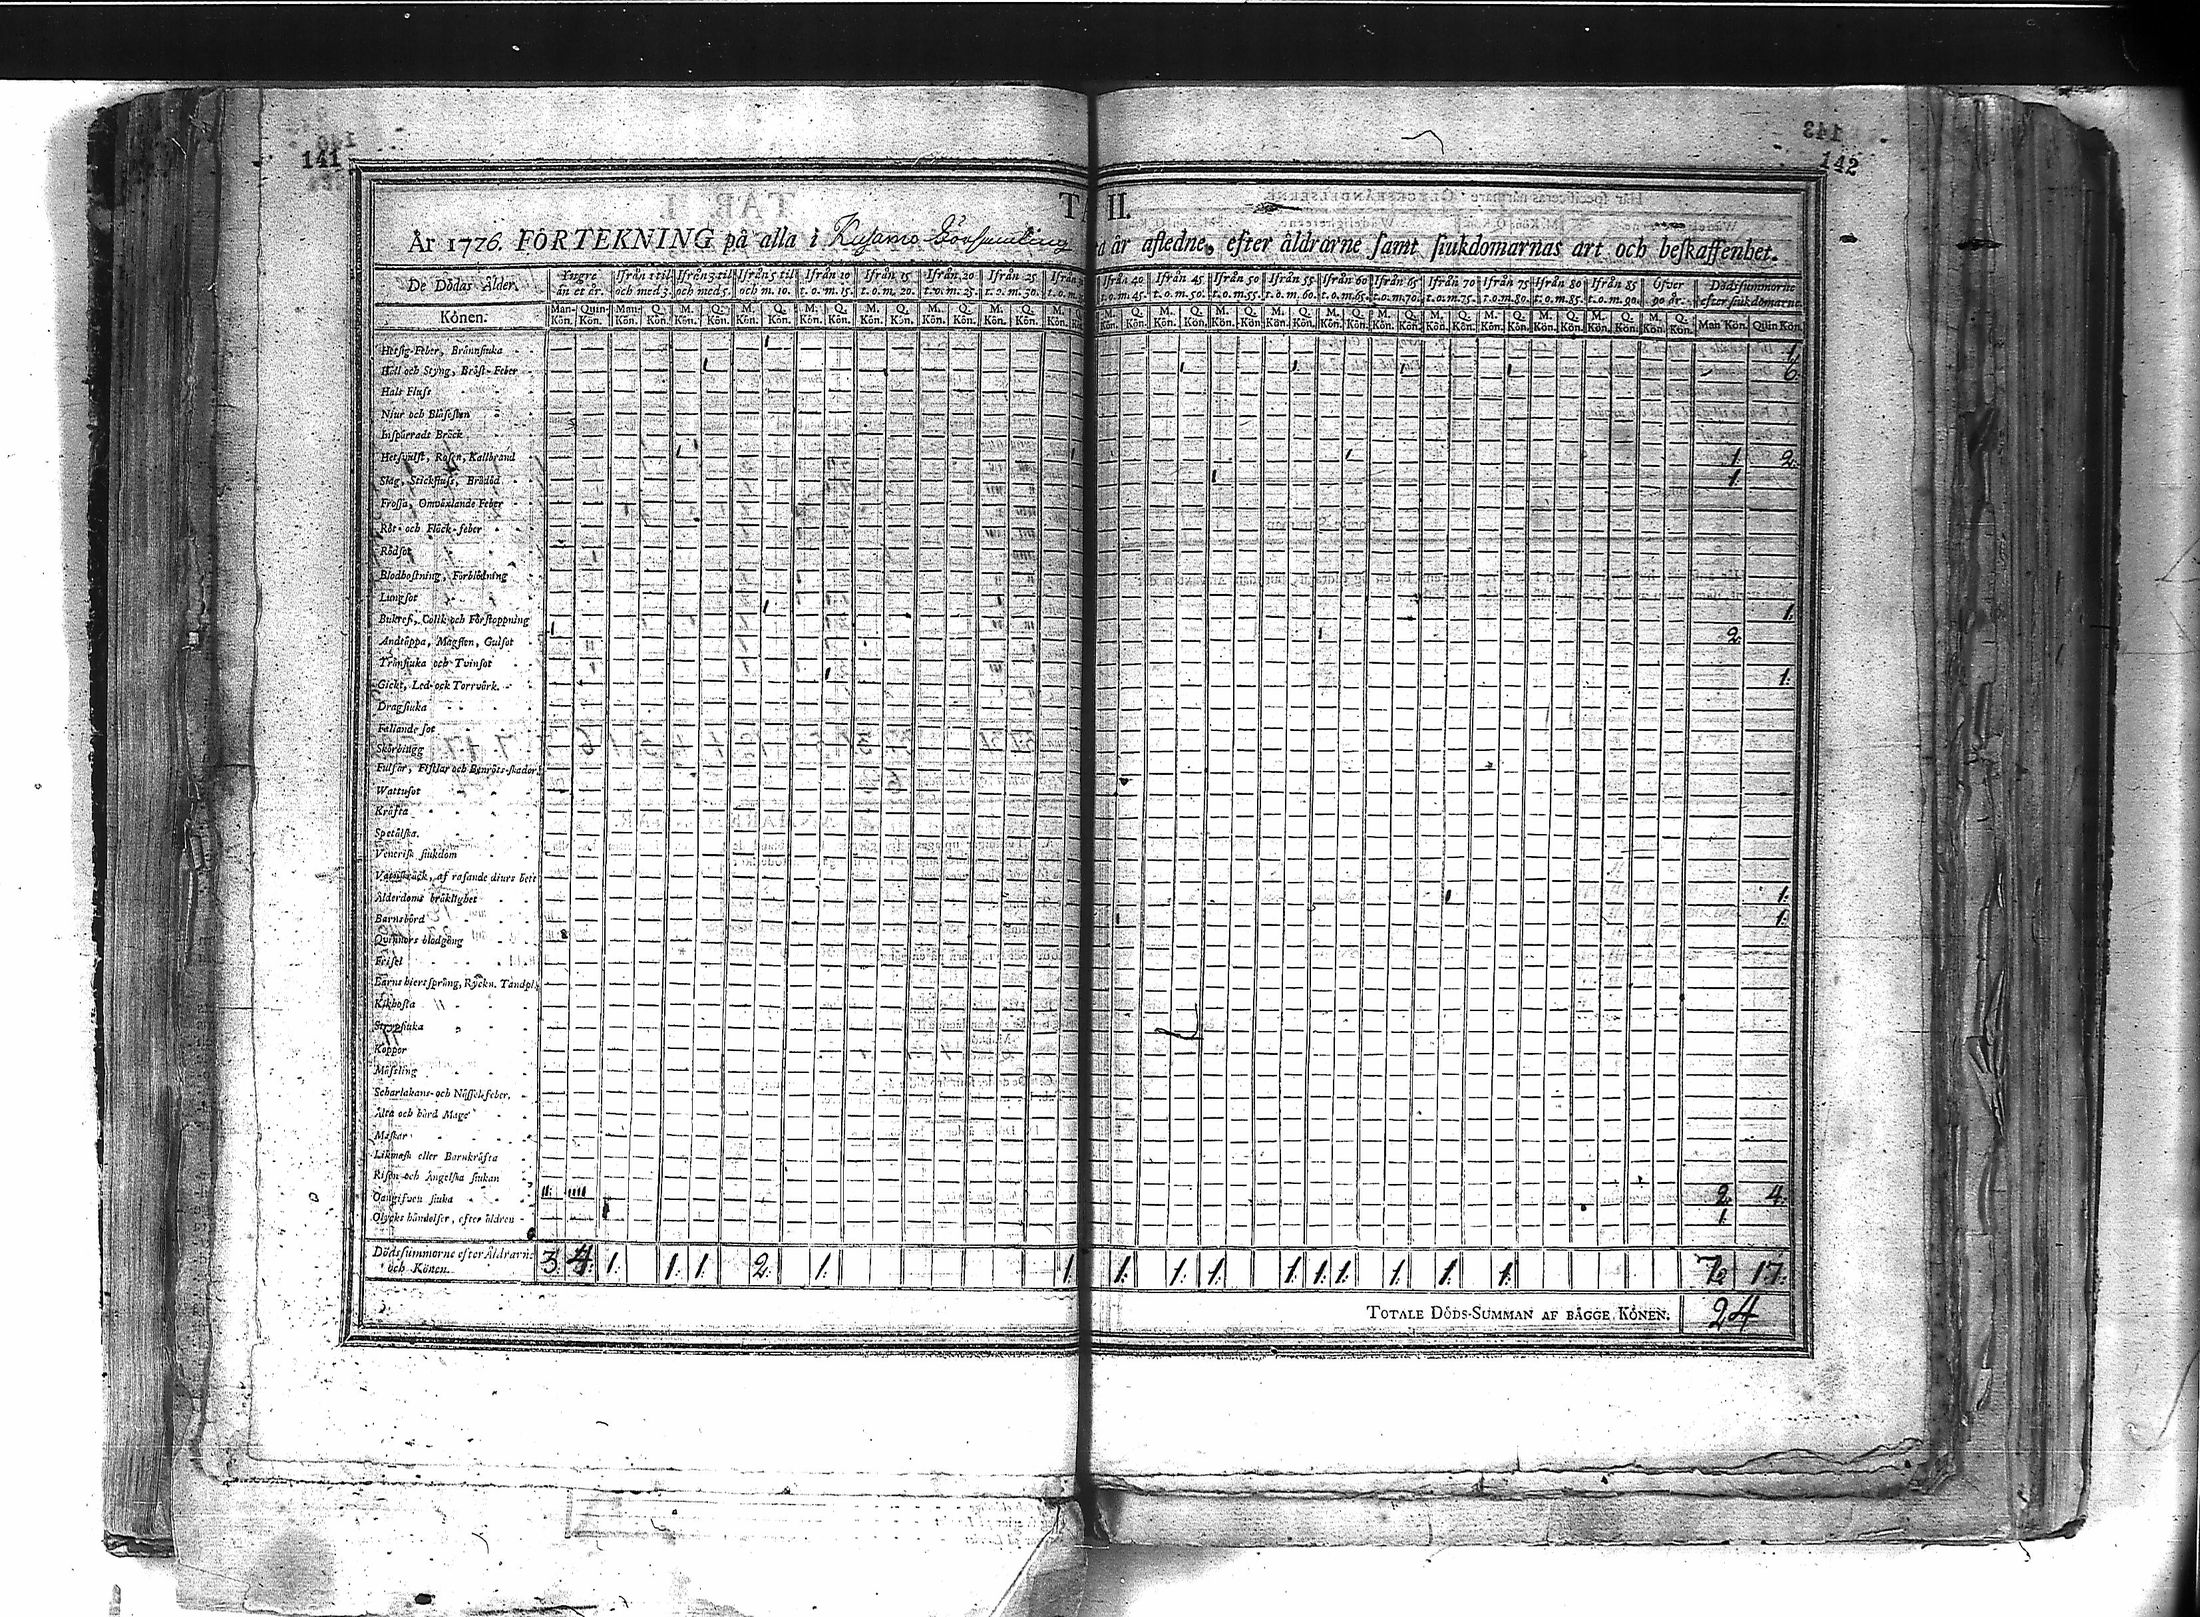 141
142
143
TAB. II.
År 1776. FÖRTEKNING på alla i Kusamo Församling
år afledne, efter åldrarne samt siukdomarnas art och beskaffenhet.
De Dödas Ålder. Yngre än et år. Ifrån 1 til och med 3. Ifrån 3 til och med 5. Ifrån 5 til och m. 10. Ifrån 10 t. o. m. 15. Ifrån 15 t. o. m. 20. Ifrån 20 t. o. m. 25. Ifrån 25 t. o. m. 30. Ifrån 40 t. o. m. 45. Ifrån 45 t. o. m. 50. Ifrån 50 t. o. m. 55. Ifrån 55 t. o. m. 60. Ifrån 60 t. o. m. 65. Ifrån 65 t. o. m. 70. Ifrån 70 t. o. m. 75. Ifrån 75 t. o. m. 80. Ifrån 80 t. o. m. 85. Ifrån 85 t. o. m. 90. Öfver 90 år. Dödssummorne efter siukdomarne.
Könen. Man-Kön. Quin-Kön. Man-Kön. Q. Kön. M. Kön. Q. Kön. M. Kön. Q. Kön. M. Kön. Q. Kön. M. Kön. Q. Kön. M. Kön. Q. Kön. M. Kön. Q. Kön. Man Kön. Qvin Kön.
Hetsig-Feber, Brännsiuka 1 1.
Håll och Styng, Bröst-Feber 1 1 1 1 1 1 6.
Hals Fluss
Niur och Blåsesten
Inspärradt Bräck
Hetsvulst, Rosen, Kallbrand 1 1 1 1. 2.
Slag, Stickfluss, Brådöd 1 1.
Frossa, Omväxlande Feber
Röt- och Fläck-feber
Rödsot
Blodhostning, Förblödning
Lungsot
Bukref, Colik och Förstoppning 1 1.
Andtäppa, Magsten, Gulsot 1 1 2.
Tränsiuka och Tvinsot
Gickt, Led- ock Torrvärk. 1 1.
Dragsiuka
Fallande sot
Skörbiugg
Fulsår, Fistlar och Benröts-skador
Wattusot
Kräfta
Spetälska.
Venerisk siukdom
Vatuskräck, af rasande diurs bett
Ålderdoms bräklighet 1 1.
Barnsbörd 1 1.
Qvinnors blodgång
Frisel
Barns hiertsprång, Ryckn. Tandpl.
Kikhosta
Strypsiuka
Koppor
Mässling
Scharlakans- och Nässelfeber.
Älta och hård Mage
Maskar
Likmask eller Barnkräfta
Risen och Ängelska siukan
Oangifven siuka 11 1111 2. 4.
Olycks händelser, efter åldren 1 1.
Dödssummorne efter Åldrarne och Könen. 3 4. 1. 1. 1. 2. 1. 1. 1. 1. 1. 1. 1. 1. 1. 1. 1. 7. 17.
TOTALE DÖDS-SUMMAN AF BÄGGE KÖNEN. 24